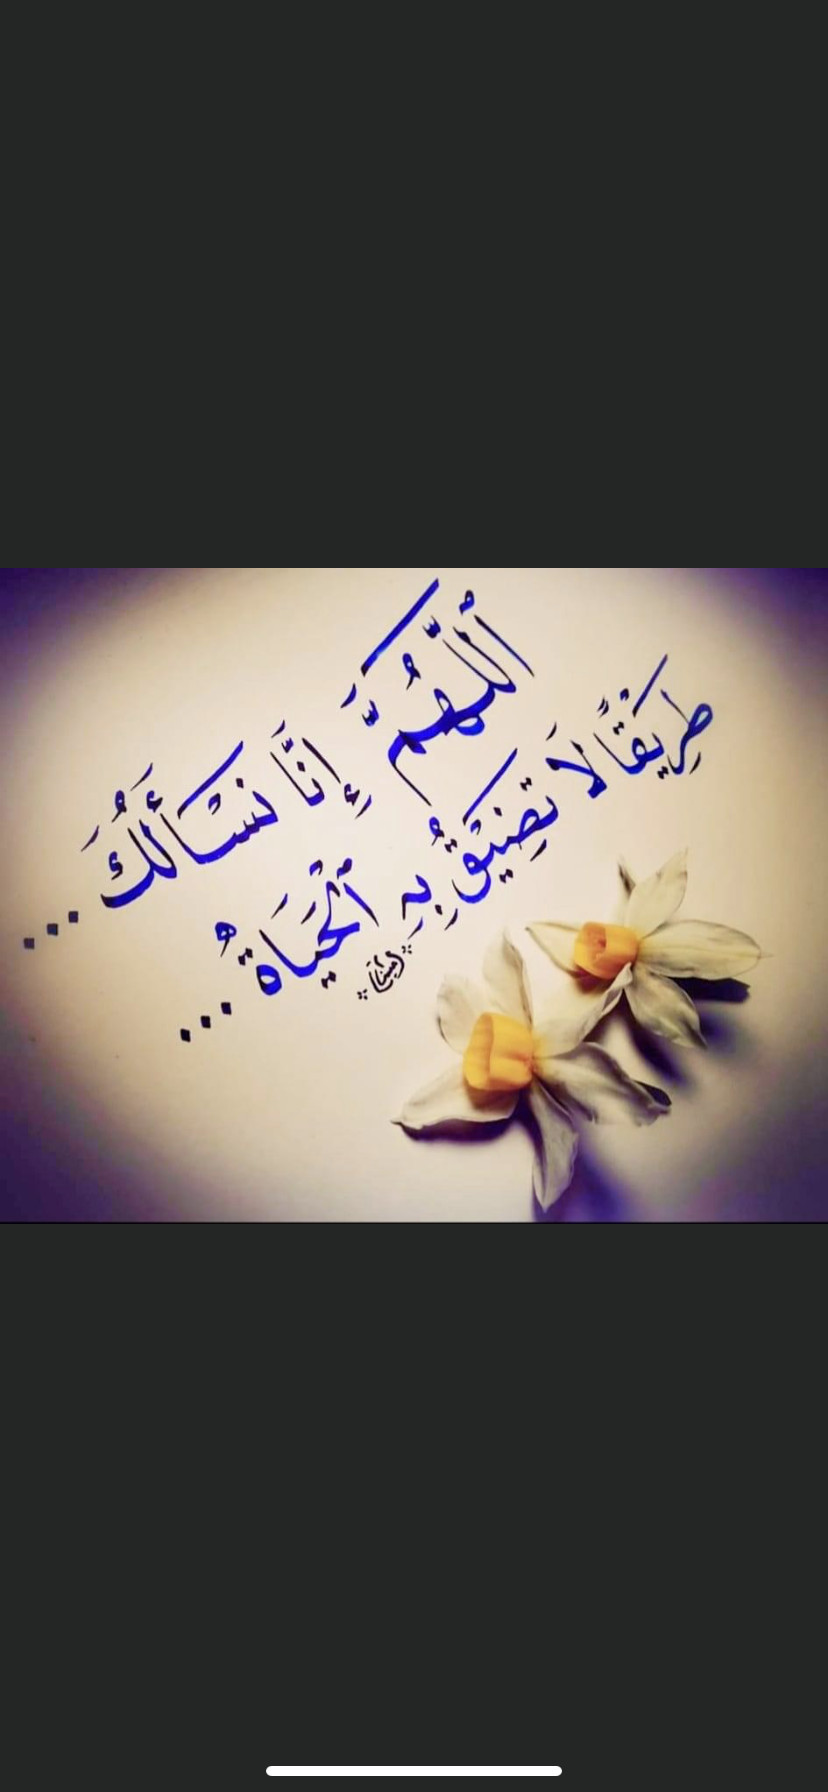 اَللَّهُمَّ إِنَّا نَسْأَلُكَ...
طَرِيْقًا لَا تَضِيْقُ بِهِ ٱلْحَيَاةُ...